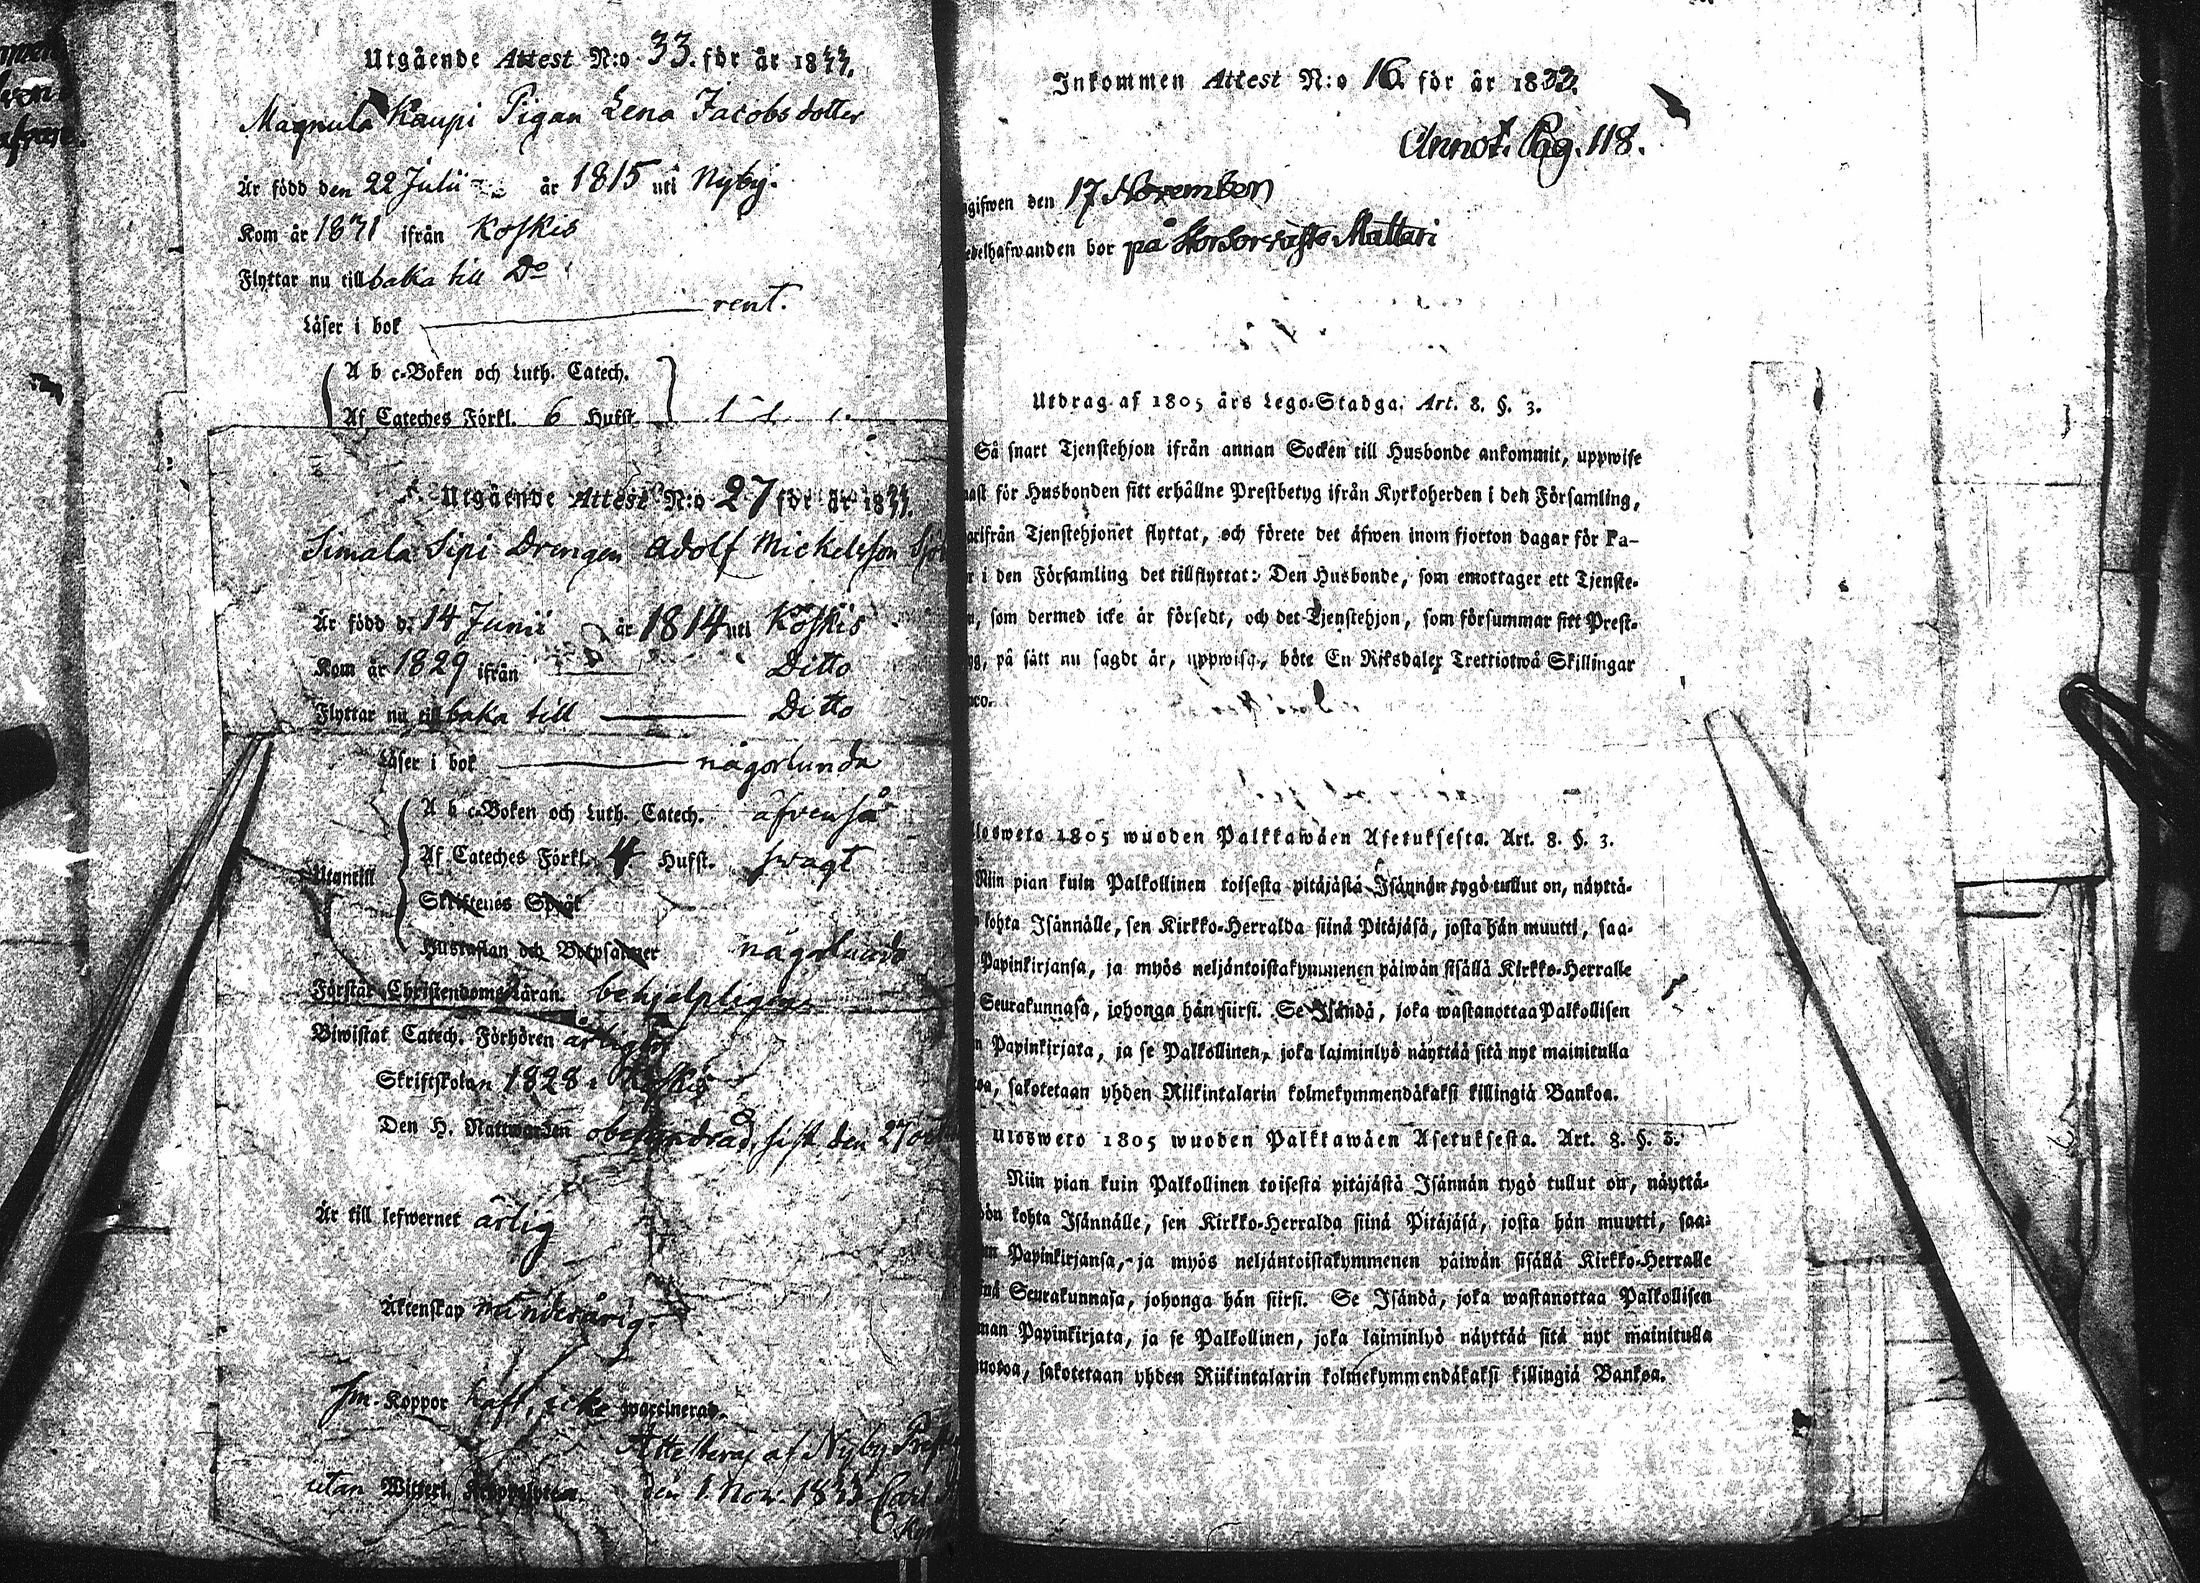 Utgående Attest N:o 33. för år 1833.
Magnula Kaupi Pigan Lena Jacobsdotter
Är född den 22 Julii år 1815 uti Nyby.
Kom år 1831 ifrån Koskis
Flyttar nu tillbaka till Do
Läser i bok rent.
A b c-Boken och Luth. Catech.
Af Cateches Förkl. 6 Hufst.
Utgående Attest N:o 27 för år 1833.
Simala Sipi Drengen Adolf Mickelsson
Är född d. 14 Junii år 1814 uti Koskis
Kom år 1829 ifrån Ditto
Flyttar nu tillbaka till Ditto
Läser i bok någorlunda
A b c-Boken och Luth. Catech. äfvenså
Utantill Af Cateches Förkl. 4 Hufst. swagt
Skriftenes Språk
Hustaflan och Botpsalmer någorlunda
Förstår Christendoms Läran behjelpligen
Biwistat Catech. Förhören årligen
Skriftskolan 1828 i Koskis
Den H. Nattwarden obehindrad, sist den 27
Är till lefwernet ärlig
Äktenskap minderårig.
Sm. Koppor haft, icke waccinerad.
Attesteras af Nyby
utan Witterl. den 1 Nov. 1833 Carl
Inkommen Attest N:o 16. för år 1833.
Annot. Pag. 118.
gifwen den 17 November
edelhafwanden bor på Mattari
Utdrag af 1805 års Lego-Stadga. Art. 8. §. 3.
Så snart Tjenstehjon ifrån annan Socken till Husbonde ankommit, uppwise
nast för Husbonden sitt erhållne Prestbetyg ifrån Kyrkoherden i den Församling,
arifrån Tjenstehjonet flyttat, och förete det äfwen inom fjorton dagar för Pa-
r i den Församling det tillflyttat: Den Husbonde, som emottager ett Tjenste-
n, som dermed icke är försedt, och det Tjenstehjon, som försummar sitt Prest-
yg, på sätt nu sagdt är, uppwisa, böte En Riksdaler Trettiotwå Skillingar
nco.
losweto 1805 wuoden Palkkawäen Asetuksesta. Art. 8. §. 3.
Niin pian kuin Palkollinen toisesta pitäjästä Isännän tygö tullut on, näyttä-
n kohta Isännälle, sen Kirkko-Herralda siinä Pitäjäsä, josta hän muutti, saa-
Papinkirjansa, ja myös neljäntoistakymmenen päiwän sisällä Kirkko-Herralle
Seurakunnasa, johonga hän siirsi. Se Isändä, joka wastanottaa Palkollisen
n Papinkirjata, ja se Palkollinen, joka laiminlyö näyttää sitä nyt mainitulla
oa, sakotetaan yhden Riikintalarin kolmekymmendäkaksi killingiä Bankoa.
Ulosweto 1805 wuoden Palkkawäen Asetuksesta. Art. 8. §. 3.
Niin pian kuin Palkollinen toisesta pitäjästä Isännän tygö tullut on, näyttä-
öön kohta Isännälle, sen Kirkko-Herralda siinä Pitäjäsä, josta hän muutti, saa-
un Papinkirjansa, ja myös neljäntoistakymmenen päiwän sisällä Kirkko-Herralle
inä Seurakunnasa, johonga hän siirsi. Se Isändä, joka wastanottaa Palkollisen
man Papinkirjata, ja se Palkollinen, joka laiminlyö näyttää sitä nyt mainitulla
uotoa, sakotetaan yhden Riikintalarin kolmekymmendäkaksi killingiä Bankoa.